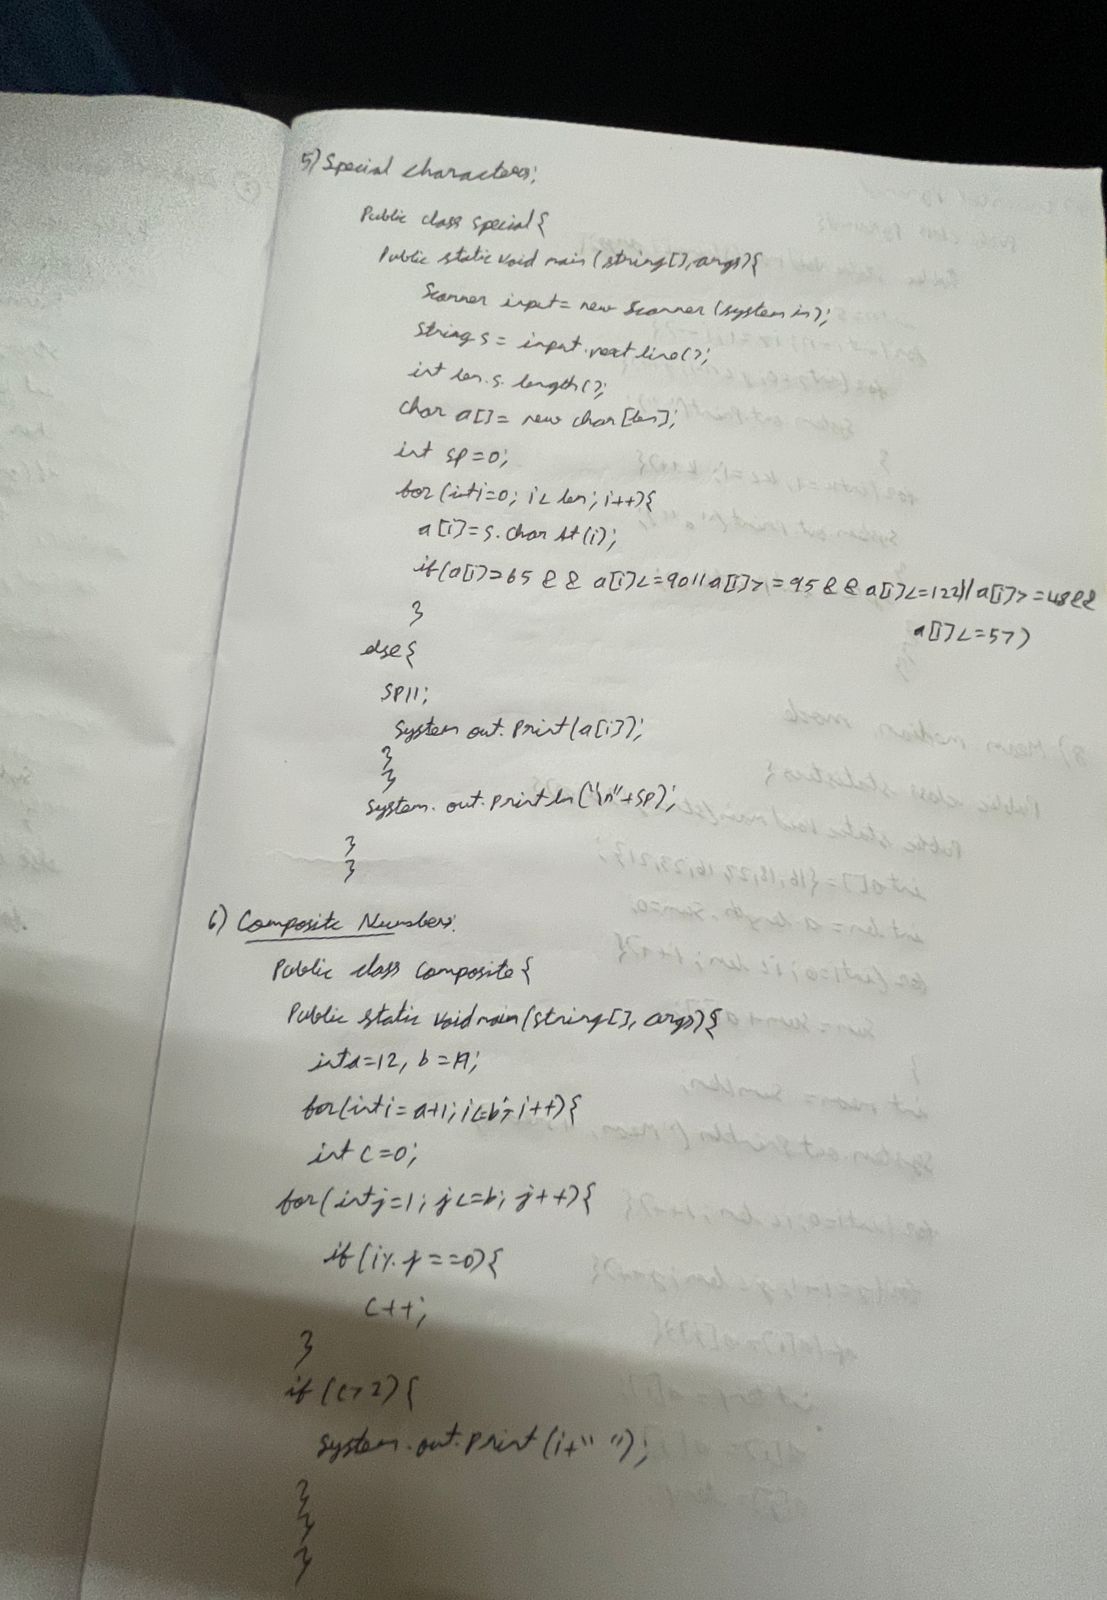 5) Special characters:
Public class special {
Public static void main (string[], args) {
Scanner input = new Scanner (system in);
String s = input.next line();
int len. s. length ();
char a[] = new char [len];
int sp = 0;
for (int i=0; i < len; i++) {
a[i] = s. char At (i);
if (a[i] >= 65 && a[i] <= 90 || a[i] >= 95 && a[i] <= 122 || a[i] >= 48 &&
a[i] <= 57)
}
else {
SP||;
System out. Print (a[i]);
}
}
System. out. println ("\n" + SP);
}
}
6) Composite Numbers:
Public class composite {
Public static void main (string[], args) {
int a=12, b = 19;
for (int i = a+1; i <= b; i++) {
int c = 0;
for (int j=1; j <= b; j++) {
if (i % j == 0) {
c++;
}
if (c > 2) {
System. out. print (i + " ");
}
}
}